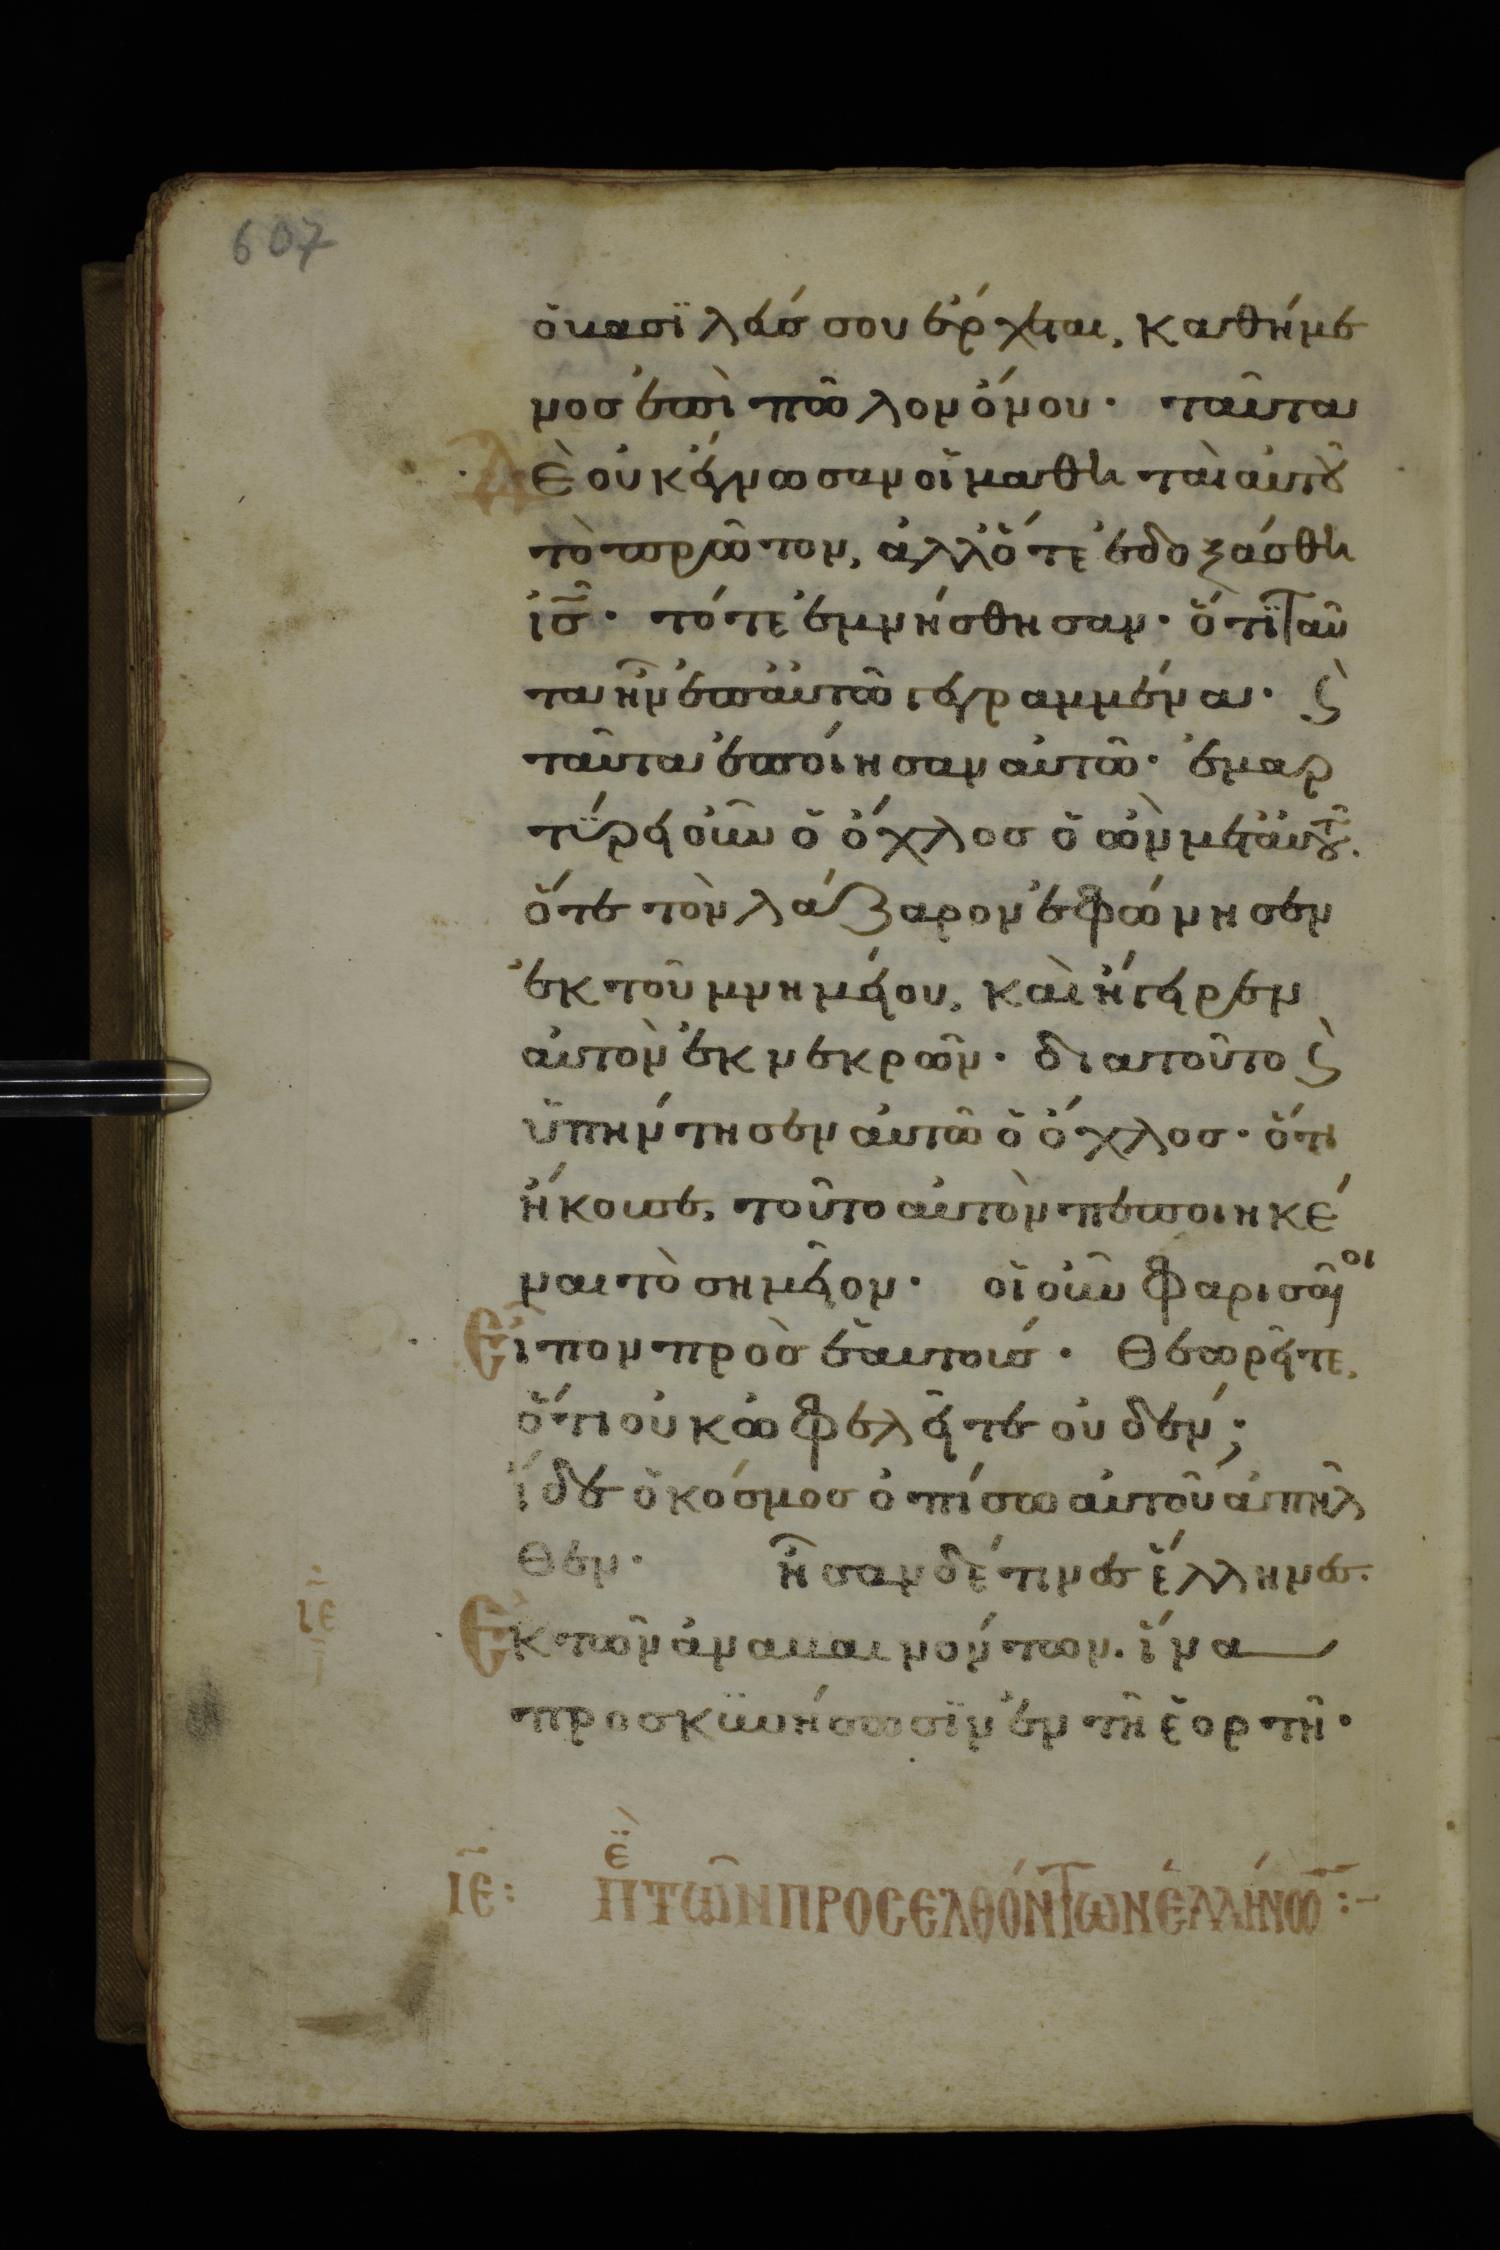 607
ὁ βασϊλεύσ σου ἔρχεται, καθήμε
νοσ ἐπὶ πῶλον ὄνου· ταῦτα
Δὲ οὐκ ἔγνωσαν οἱ μαθηταὶ αὐτοῦ
τὸ πρῶτον, ἀλλ' ὅτε ἐδοξάσθη
ἰσ̅· τότε ἐμνήσθησαν· ὅτϊ ταῦ
τα ἦν ἐπ' αὐτῶ γεγραμμένα· ϛ̀
ταῦτα ἐποίησαν αὐτῶ· ἐμαρ
τΰρει οὖν ὁ ὄχλοσ ὁ ὢν μετ' αὐτοῦ.
ὅτε τὸν λάζαρον ἐφώνησεν
ἐκ τοῦ μνημείου, καὶ ἤγειρεν
αὐτὸν ἐκ νεκρῶν· διατοῦτο ϛ̀
ὑπήντησεν αὐτῶ ὁ ὄχλοσ· ὅτι
ἤκουσε, τοῦτο αὐτὸν πεποιηκέ
ναι τὸ σημεῖον· οἱ οὖν φαρισαῖοι
Εἶπον πρὸσ ἑαυτουσ· Θεωρεῖτε,
ὅτι οὐκ ὠφελεῖτε οὐδέν;
ἴδε ὁ κόσμοσ ὀπίσω αὐτοῦ ἀπῆλ
θεν· ἦσαν δέ τινεσ ἕλληνεσ.
ιε̅
Ἐκ τῶν ἀναβαινόντων. ἵνα
προσκϋνήσωσϊν ἐν τῆ ἑορτῆ·
ΙΕ̅: ΠΕ̈̀ ΤῶΝ ΠΡΟΣΕΛΘΌΝΤωΝ ἙΛΛΉΝω̅:-